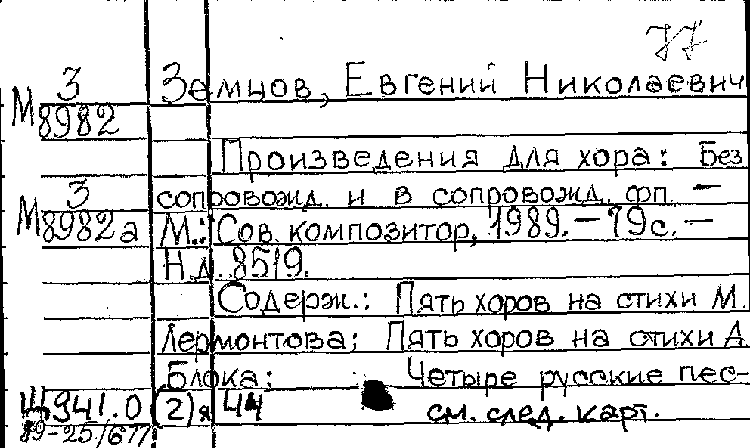 77
З Земцов, Евгений Николаевич
М8982
Произведения для хора: Без
З сопровожд. и в сопровожд. фп. —
М8982а М.: Сов. композитор, 1989. — 79 с. —
Н.д. 8519.
Содерж.: Пять хоров на стихи М.
Лермонтова; Пять хоров на стихи А.
Блока; Четыре русские пес-
Щ941.0(2)я44 см. след. карт.
89-25/677